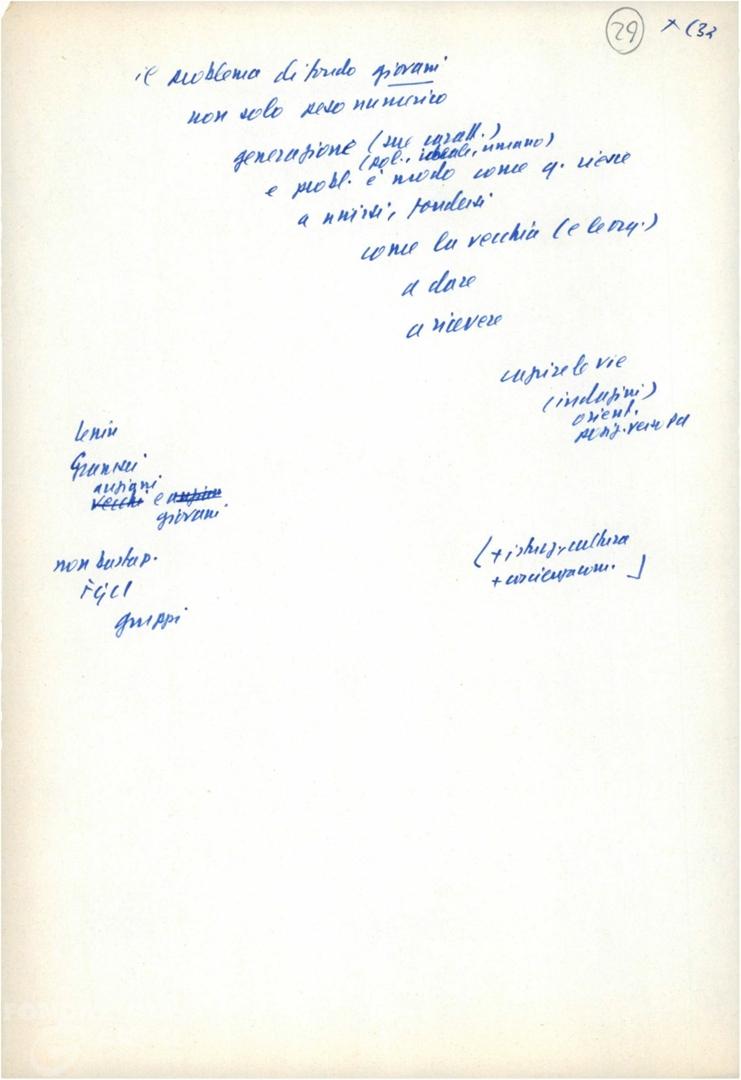 29 x (32
il problema di fondo giovani
non solo peso numerico
generazione (sue caratt.)
(pol., ideale, umano)
e probl. è modo come q. viene
a unirsi, fondersi
come la vecchia (e le org.)
a dare
a ricevere
capire le vie
(indagini)
orient.
posiz. verso Pd
Lenin
Gramsci
anziani
vecchi e anziani
giovani
non basta p.
FGCI
gruppi
(+ istruz., cultura
+ coscienza com.